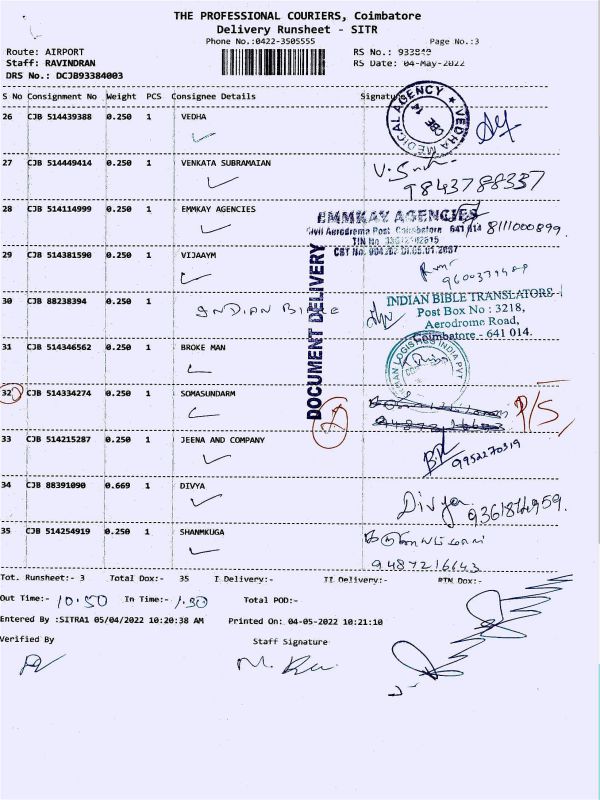 THE PROFESSIONAL COURIERS, Coimbatore
Delivery Runsheet - SITR
Phone No.:0422-3505555 Page No.:3
Route: AIRPORT
Staff: RAVINDRAN
DRS No.: DCJB93384003
RS No.: 933840
RS Date: 04-May-2022
S No Consignment No Weight PCS Consignee Details Signature
26 CJB 514439388 0.250 1 VEDHA
VEDHA MEDICAL AGENCY
CBE
27 CJB 514449414 0.250 1 VENKATA SUBRAMAIAN
9843788337
28 CJB 514114999 0.250 1 EMMKAY AGENCIES
EMMKAY AGENCIES
Civil Aerodrome Post Coimbatore 641 014
8111000899.
29 CJB 514381590 0.250 1 VIJAAYM
DOCUMENT DELIVERY
30 CJB 88238394 0.250 1 INDIAN BIBLE
INDIAN BIBLE TRANSLATORS
Post Box No : 3218,
Aerodrome Road,
Coimbatore - 641 014.
31 CJB 514346562 0.250 1 BROKE MAN
LOGISTICS INDIA PVT
32 CJB 514334274 0.250 1 SOMASUNDARM
P/S
33 CJB 514215287 0.250 1 JEENA AND COMPANY
9952270319
34 CJB 88391090 0.669 1 DIVYA
Divya
35 CJB 514254919 0.250 1 SHANMKUGA
9487216643
Tot. Runsheet:- 3 Total Dox:- 35 I Delivery:- II Delivery:- RTN Dox:-
Out Time:- 10.50 In Time:- 1.30 Total POD:-
Entered By :SITRA1 05/04/2022 10:20:38 AM Printed On: 04-05-2022 10:21:10
Verified By Staff Signature